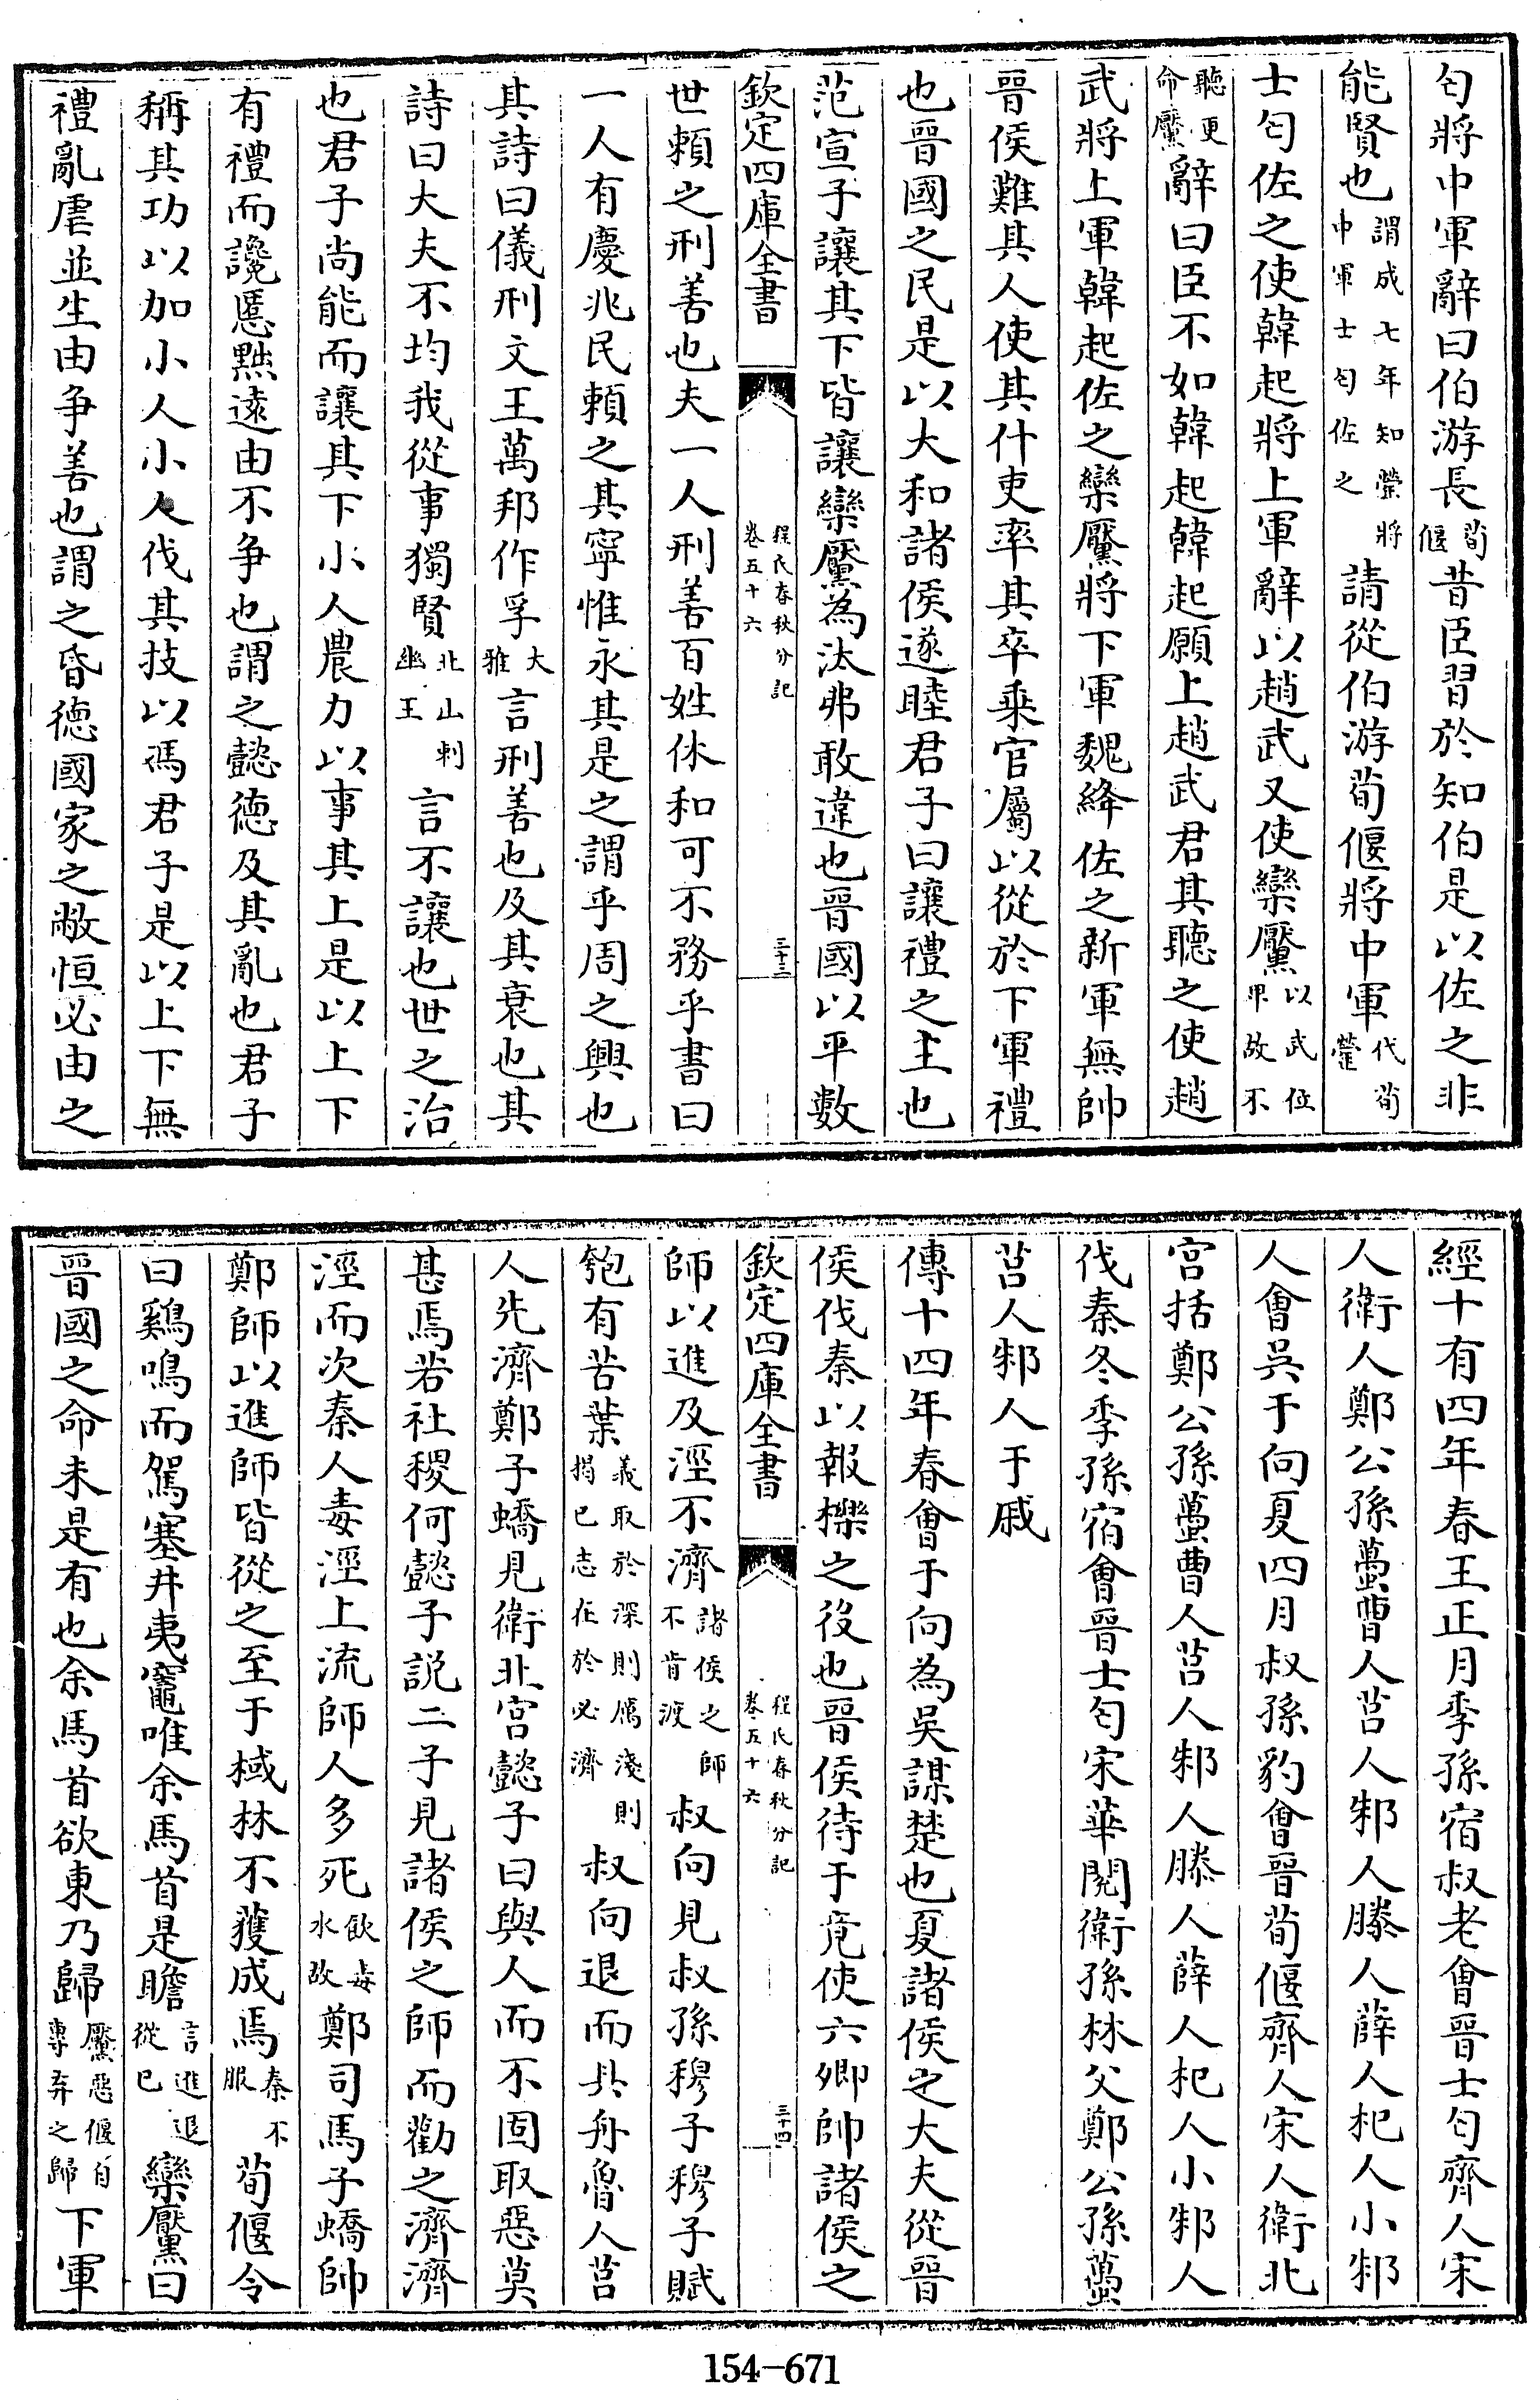 匄將中軍辭曰伯游長荀偃昔臣習於知伯是以佐之非
能賢也謂成七年知罃將中軍士匄佐之請從伯游荀偃將中軍代荀罃
士匄佐之使韓起將上軍辭以趙武又使欒黶以武位卑故不
聽更命黶辭曰臣不如韓起韓起願上趙武君其聽之使趙
武將上軍韓起佐之欒黶將下軍魏絳佐之新軍無帥
晉侯難其人使其什吏率其卒乗官屬以從於下軍禮
也晉國之民是以大和諸侯遂睦君子曰讓禮之主也
范宣子讓其下皆讓欒黶為汰弗敢違也晉國以平數
欽定四庫全書 程氏春秋分記 卷五十六 三十三
世賴之刑善也夫一人刑善百姓休和可不務乎書曰
一人有慶兆民賴之其寧惟永其是之謂乎周之興也
其詩曰儀刑文王萬邦作孚大雅言刑善也及其衰也其
詩曰大夫不均我從事獨賢北山刺幽王言不讓也世之治
也君子尚能而讓其下小人農力以事其上是以上下
有禮而讒慝黜遠由不争也謂之懿德及其亂也君子
稱其功以加小人小人伐其技以馮君子是以上下無
禮亂虐並生由争善也謂之昏德國家之敝恒必由之
經十有四年春王正月季孫宿叔老會晉士匄齊人宋
人衛人鄭公孫蠆曹人莒人邾人滕人薛人杞人小邾
人會吳于向夏四月叔孫豹會晉荀偃齊人宋人衛北
宮括鄭公孫蠆曹人莒人邾人滕人薛人杞人小邾人
伐秦冬季孫宿會晉士匄宋華閱衛孫林父鄭公孫蠆
莒人邾人于戚
傳十四年春會于向為吳謀楚也夏諸侯之大夫從晉
侯伐秦以報櫟之役也晉侯待于竟使六卿帥諸侯之
欽定四庫全書 程氏春秋分記 卷五十六 三十四
師以進及涇不濟諸侯之師不肯渡叔向見叔孫穆子穆子賦
匏有苦葉義取於深則厲淺則揭已志在於必濟叔向退而具舟魯人莒
人先濟鄭子蟜見衛北宮懿子曰與人而不固取惡莫
甚焉若社稷何懿子說二子見諸侯之師而勸之濟濟
涇而次秦人毒涇上流師人多死飲毒水故鄭司馬子蟜帥
鄭師以進師皆從之至于棫林不獲成焉秦不服荀偃令
曰鷄鳴而駕塞井夷竈唯余馬首是瞻言進退從已欒黶曰
晉國之命未是有也余馬首欲東乃歸黶惡偃自專弃之歸下軍
154-671